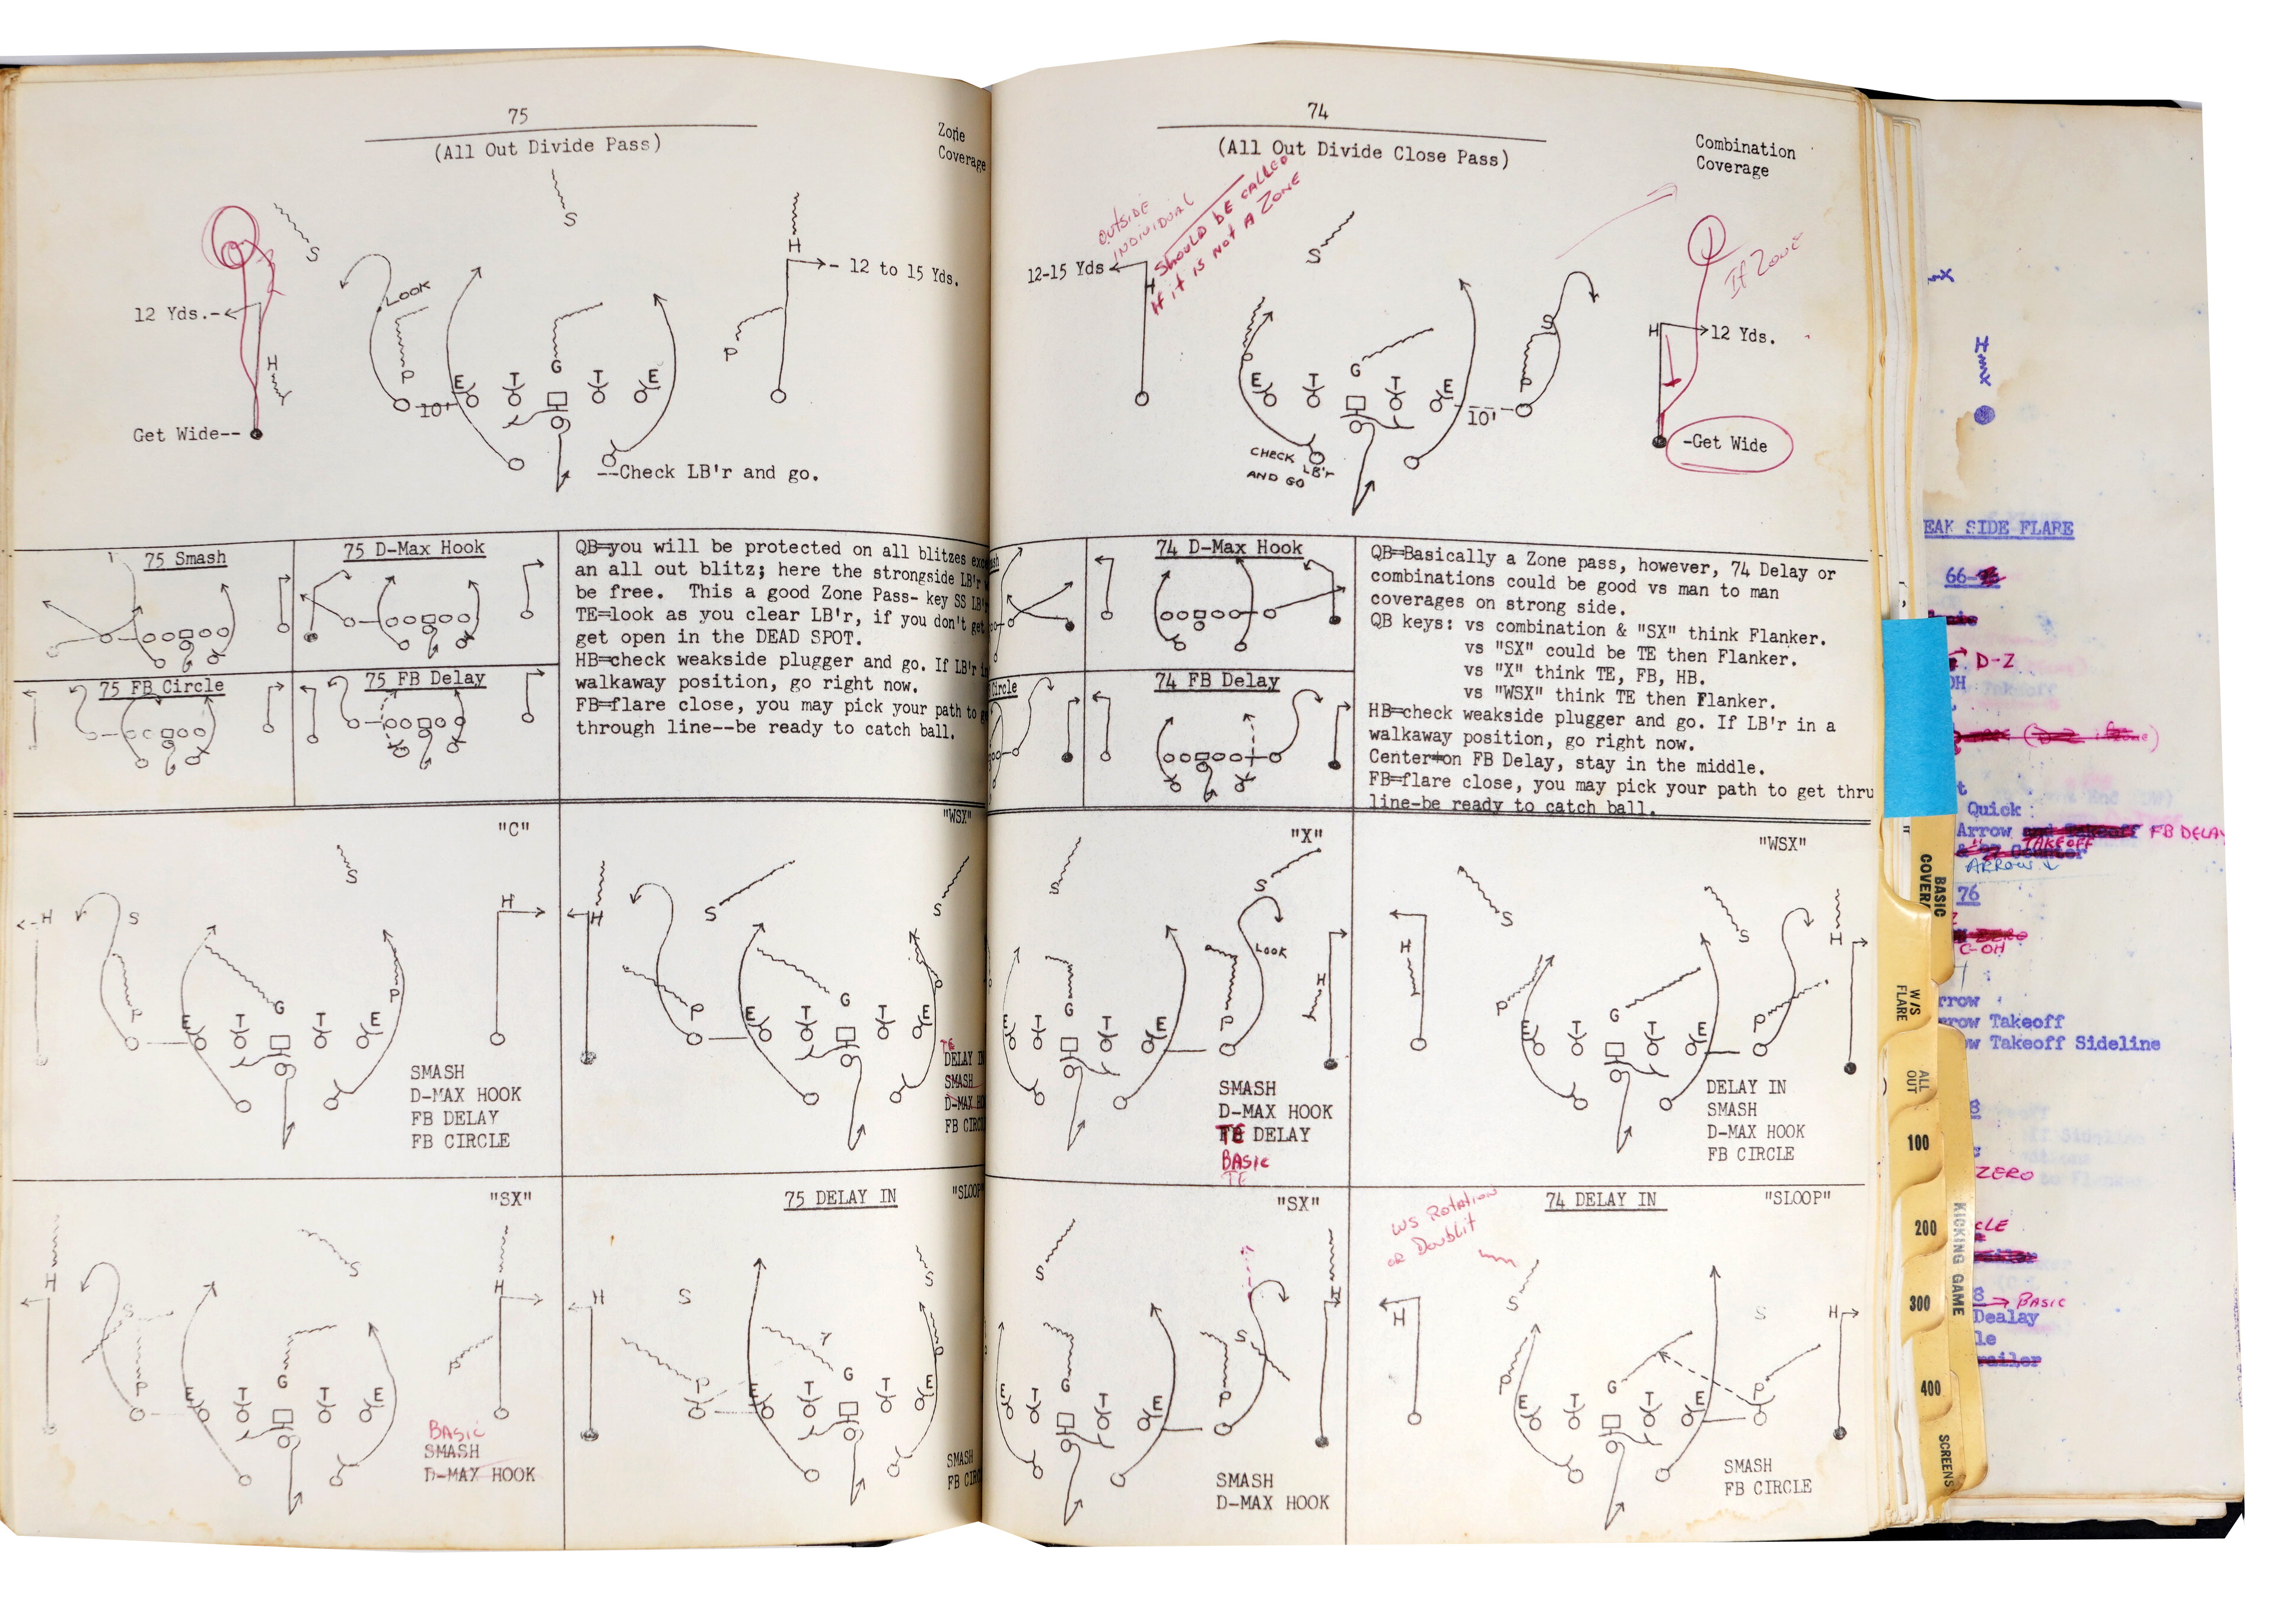 75
(All Out Divide Pass)
Zone
Coverage
S
S
H
12 to 15 Yds.
LOOK
12 Yds.
H
P
P
G
E T T E
10'
Get Wide--
--Check LB'r and go.
75 Smash
75 D-Max Hook
75 FB Circle
75 FB Delay
QB=you will be protected on all blitzes
an all out blitz; here the strongside LB'r
be free. This a good Zone Pass- key SS LB'
TE=look as you clear LB'r, if you don't get
get open in the DEAD SPOT.
HB=check weakside plugger and go. If LB'r
walkaway position, go right now.
FB=flare close, you may pick your path to
through line--be ready to catch ball.
"C"
S
H
S
H
P
G
P
E T T E
SMASH
D-MAX HOOK
FB DELAY
FB CIRCLE
"WSX"
H
S
S
P
G
E T T E
TE
DELAY IN
SMASH
FB
"SX"
H
S
H
S
P
G
P
E T T E
BASIC
SMASH
D-MAX HOOK
75 DELAY IN
"SLOOP"
H
S
S
P
G
E T T E
SMASH
FB
74
(All Out Divide Close Pass)
Combination
Coverage
OUTSIDE
INDIVIDUAL
SHOULD BE CALLED
IF IT IS NOT A ZONE
12-15 Yds
H
S
If Zone
S
H
12 Yds.
P
G
P
E T T E
10'
CHECK LB'r
AND GO
-Get Wide
Circle
74 D-Max Hook
74 FB Delay
QB=Basically a Zone pass, however, 74 Delay or
combinations could be good vs man to man
coverages on strong side.
QB keys: vs combination & "SX" think Flanker.
vs "SX" could be TE then Flanker.
vs "X" think TE, FB, HB.
vs "WSX" think TE then Flanker.
HB=check weakside plugger and go. If LB'r in a
walkaway position, go right now.
Center=on FB Delay, stay in the middle.
FB=flare close, you may pick your path to get thru
line-be ready to catch ball.
"X"
S
S
LOOK
H
G
P
E T T E
SMASH
D-MAX HOOK
TE DELAY
BASIC
TE
"WSX"
S
S
H
H
P
G
P
E T T E
DELAY IN
SMASH
D-MAX HOOK
FB CIRCLE
"SX"
S
H
S
G
P
E T T E
SMASH
D-MAX HOOK
WS Rotation
OR Doublit
74 DELAY IN
"SLOOP"
H
S
S
H
P
G
P
E T T E
SMASH
FB CIRCLE
BASIC
W/S
FLARE
ALL
OUT
100
200
300
400
KICKING GAME
SCREENS
H
EAK SIDE FLARE
66-
D-Z
OH
Quick
Arrow FB DELAY
TAKEOFF
ARROW
76
C-OH
rrow
rrow Takeoff
ow Takeoff Sideline
8
ZERO
CLE
8 → BASIC
Dealay
le